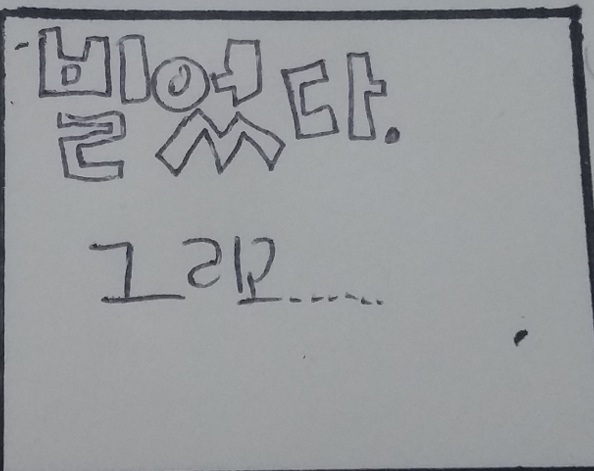 빌었다.
그리고......